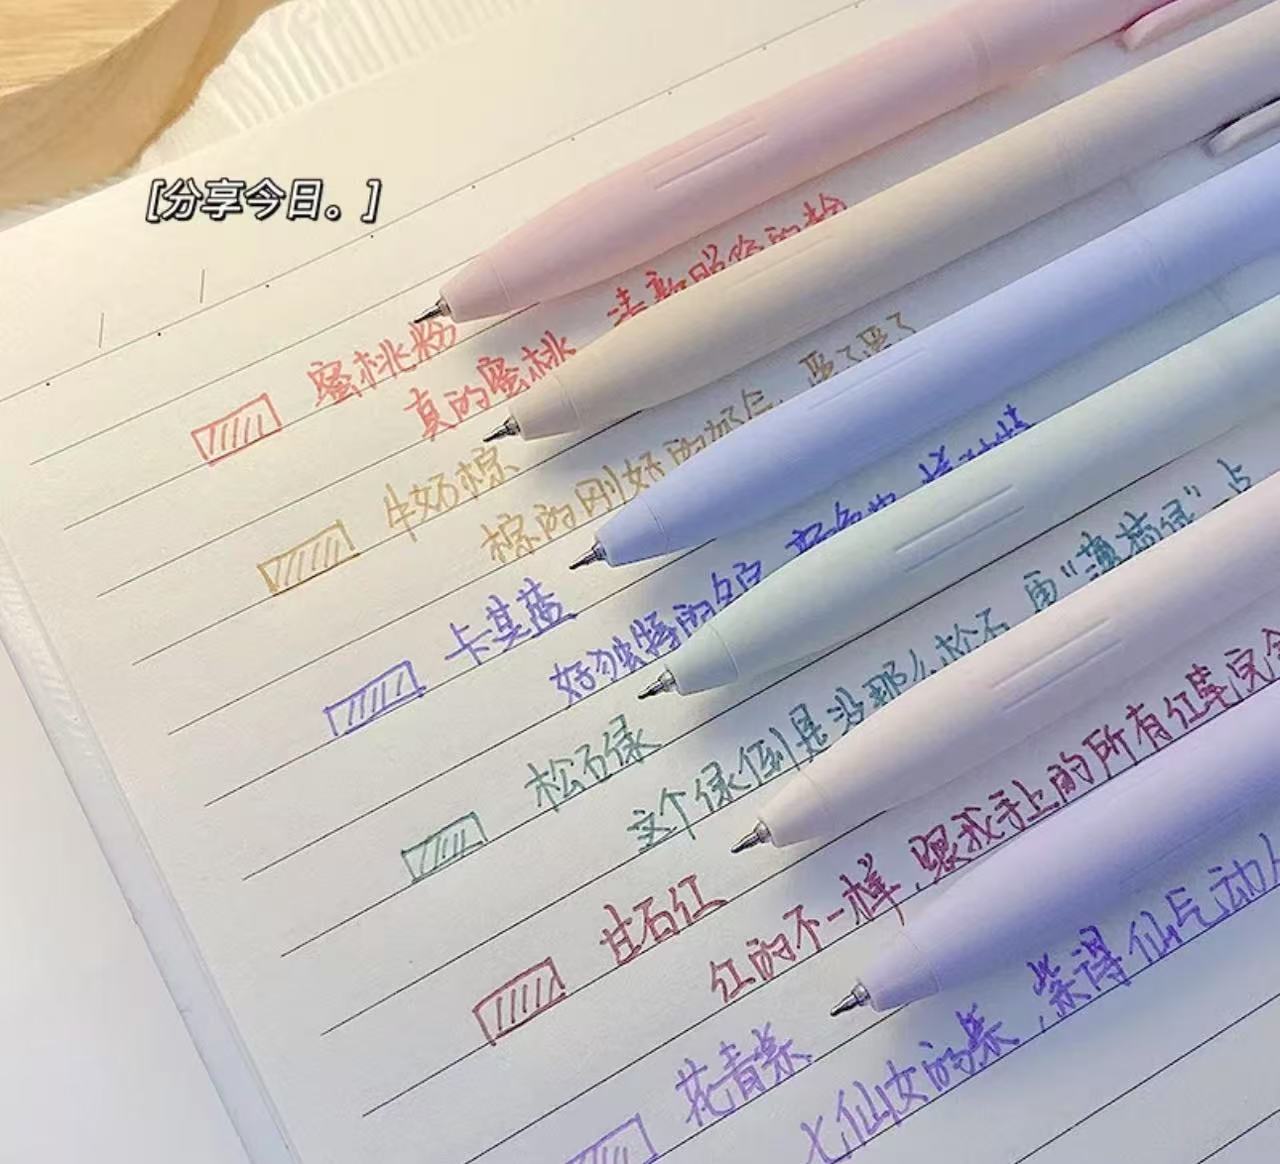 [分享今日。]
蜜桃粉
真的蜜桃 清新脱俗的粉
牛奶棕
棕的刚好的奶 爱了爱了
卡其蓝
好独特的
松石绿
这个绿倒是没那么松石 更“薄荷绿”一点
甘石红
红的不一样，跟我手上的所有红笔
花青紫
七仙女的紫，紫得仙气动人